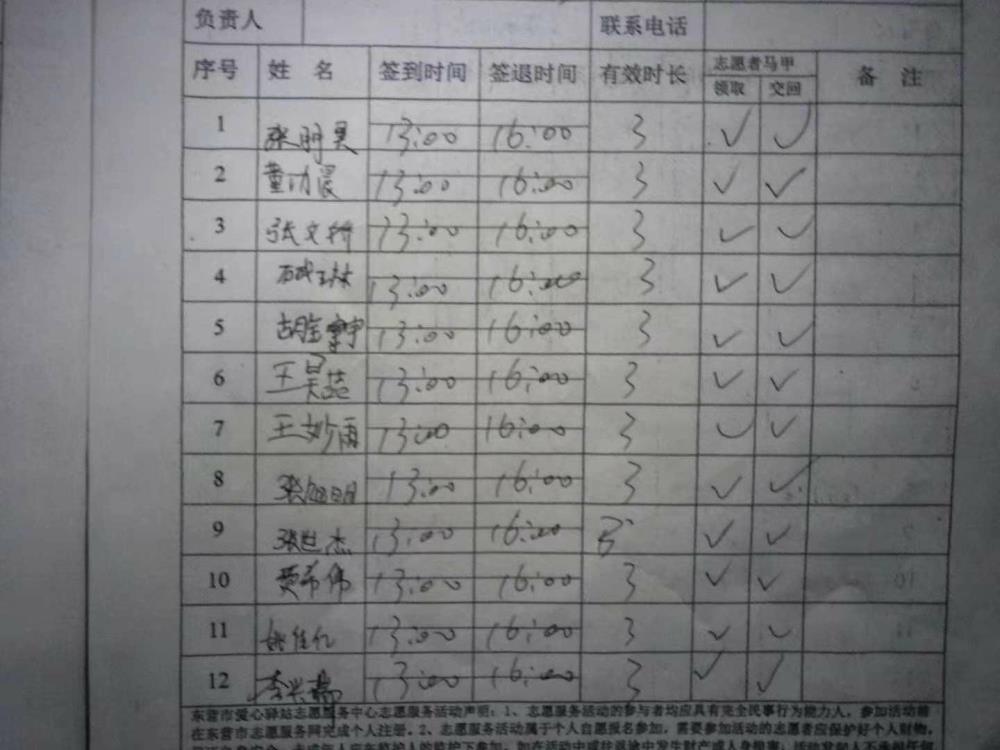 负责人 联系电话
序号 姓 名 签到时间 签退时间 有效时长 志愿者马甲 备 注
领取 交回
1 张明昊 13:00 16:00 3 ✓ ✓
2 董功宸 13:00 16:00 3 ✓ ✓
3 张文 13:00 16:00 3 ✓ ✓
4 13:00 16:00 3 ✓ ✓
5 13:00 16:00 3 ✓ ✓
6 王昊蕊 13:00 16:00 3 ✓ ✓
7 王妙雨 13:00 16:00 3 ✓ ✓
8 张旭明 13:00 16:00 3 ✓ ✓
9 张世杰 13:00 16:00 3 ✓ ✓
10 贾希伟 13:00 16:00 3 ✓ ✓
11 姚佳仁 13:00 16:00 3 ✓ ✓
12 李兴瑞 13:00 16:00 3 ✓ ✓
东营市爱心驿站志愿服务中心志愿服务活动声明：1、志愿服务活动的参与者均应具有完全民事行为能力人，参加活动前
在东营市志愿服务网完成个人注册。2、志愿服务活动属于个人自愿报名参加，需要参加活动的志愿者应保护好个人财物，